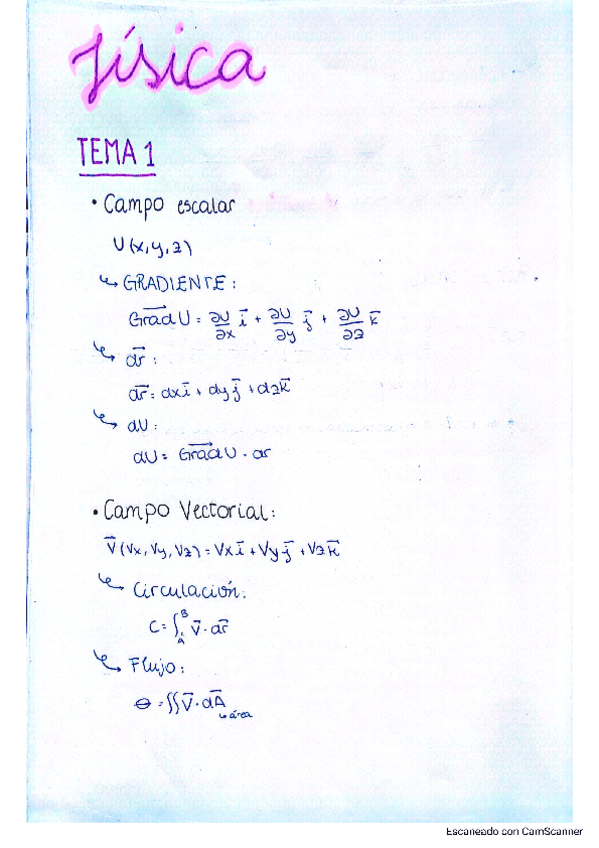 física
TEMA 1
• Campo escalar
U(x,y,z)
↳ GRADIENTE:
$\overrightarrow{Grad}$ U = $\frac{\partial U}{\partial x}$ $\vec{i}$ + $\frac{\partial U}{\partial y}$ $\vec{j}$ + $\frac{\partial U}{\partial z}$ $\vec{k}$
↳ $\vec{dr}$:
$\vec{dr}$ = dx$\vec{i}$ + dy$\vec{j}$ + dz$\vec{k}$
↳ dU:
dU = $\overrightarrow{Grad}$ U · dr
• Campo Vectorial:
$\vec{V}$(Vx, Vy, Vz) = Vx$\vec{i}$ + Vy$\vec{j}$ + Vz$\vec{k}$
↳ Circulación:
C = $\int_A^B$ $\vec{V}$ · $\vec{dr}$
↳ Flujo:
Θ = ∬ $\vec{V}$ · d$\vec{A}$
↳ área
Escaneado con CamScanner